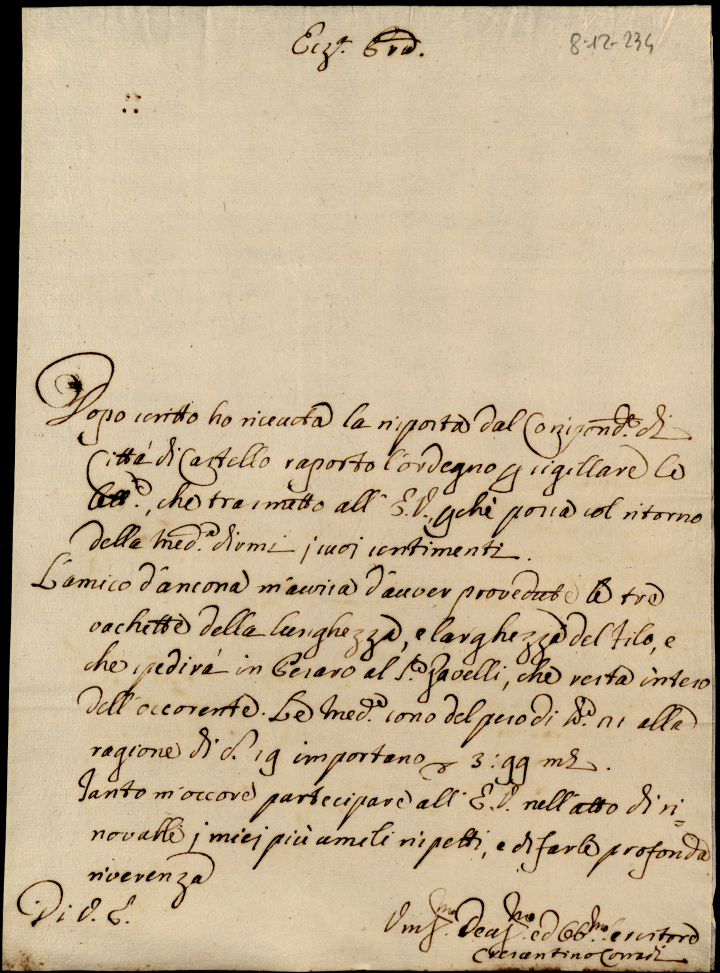 Eccza. Prd.
8-12-234
Dopo scritto ho riceuuta la risposta dal Corispondte. di
Città di Castello raporto l'ordegno p sigillare le
lette., che trasmetto all' E.V., pche possa col ritorno
della Meda. dirmi i suoi sentimenti.
L'amico d'Ancona m'auuisa d'auuer provedute le tre
vachette della lunghezza, e larghezza del filo, e
che spedirà in Pesaro al Sr. Gavelli, che resta inteso
dell'occorente. Le Mede. sono del peso di lb. 21 alla
ragione di d. 19 importano 3:99 mta.
Tanto m'occore partecipare all' E.V. nell'atto di ri=
novarle i miei più umili rispetti, e di farle profonda
riverenza
Di V. E.
Vmsmo. Deusmo. ed Obbmo. seruitore
Crescentino Corradi